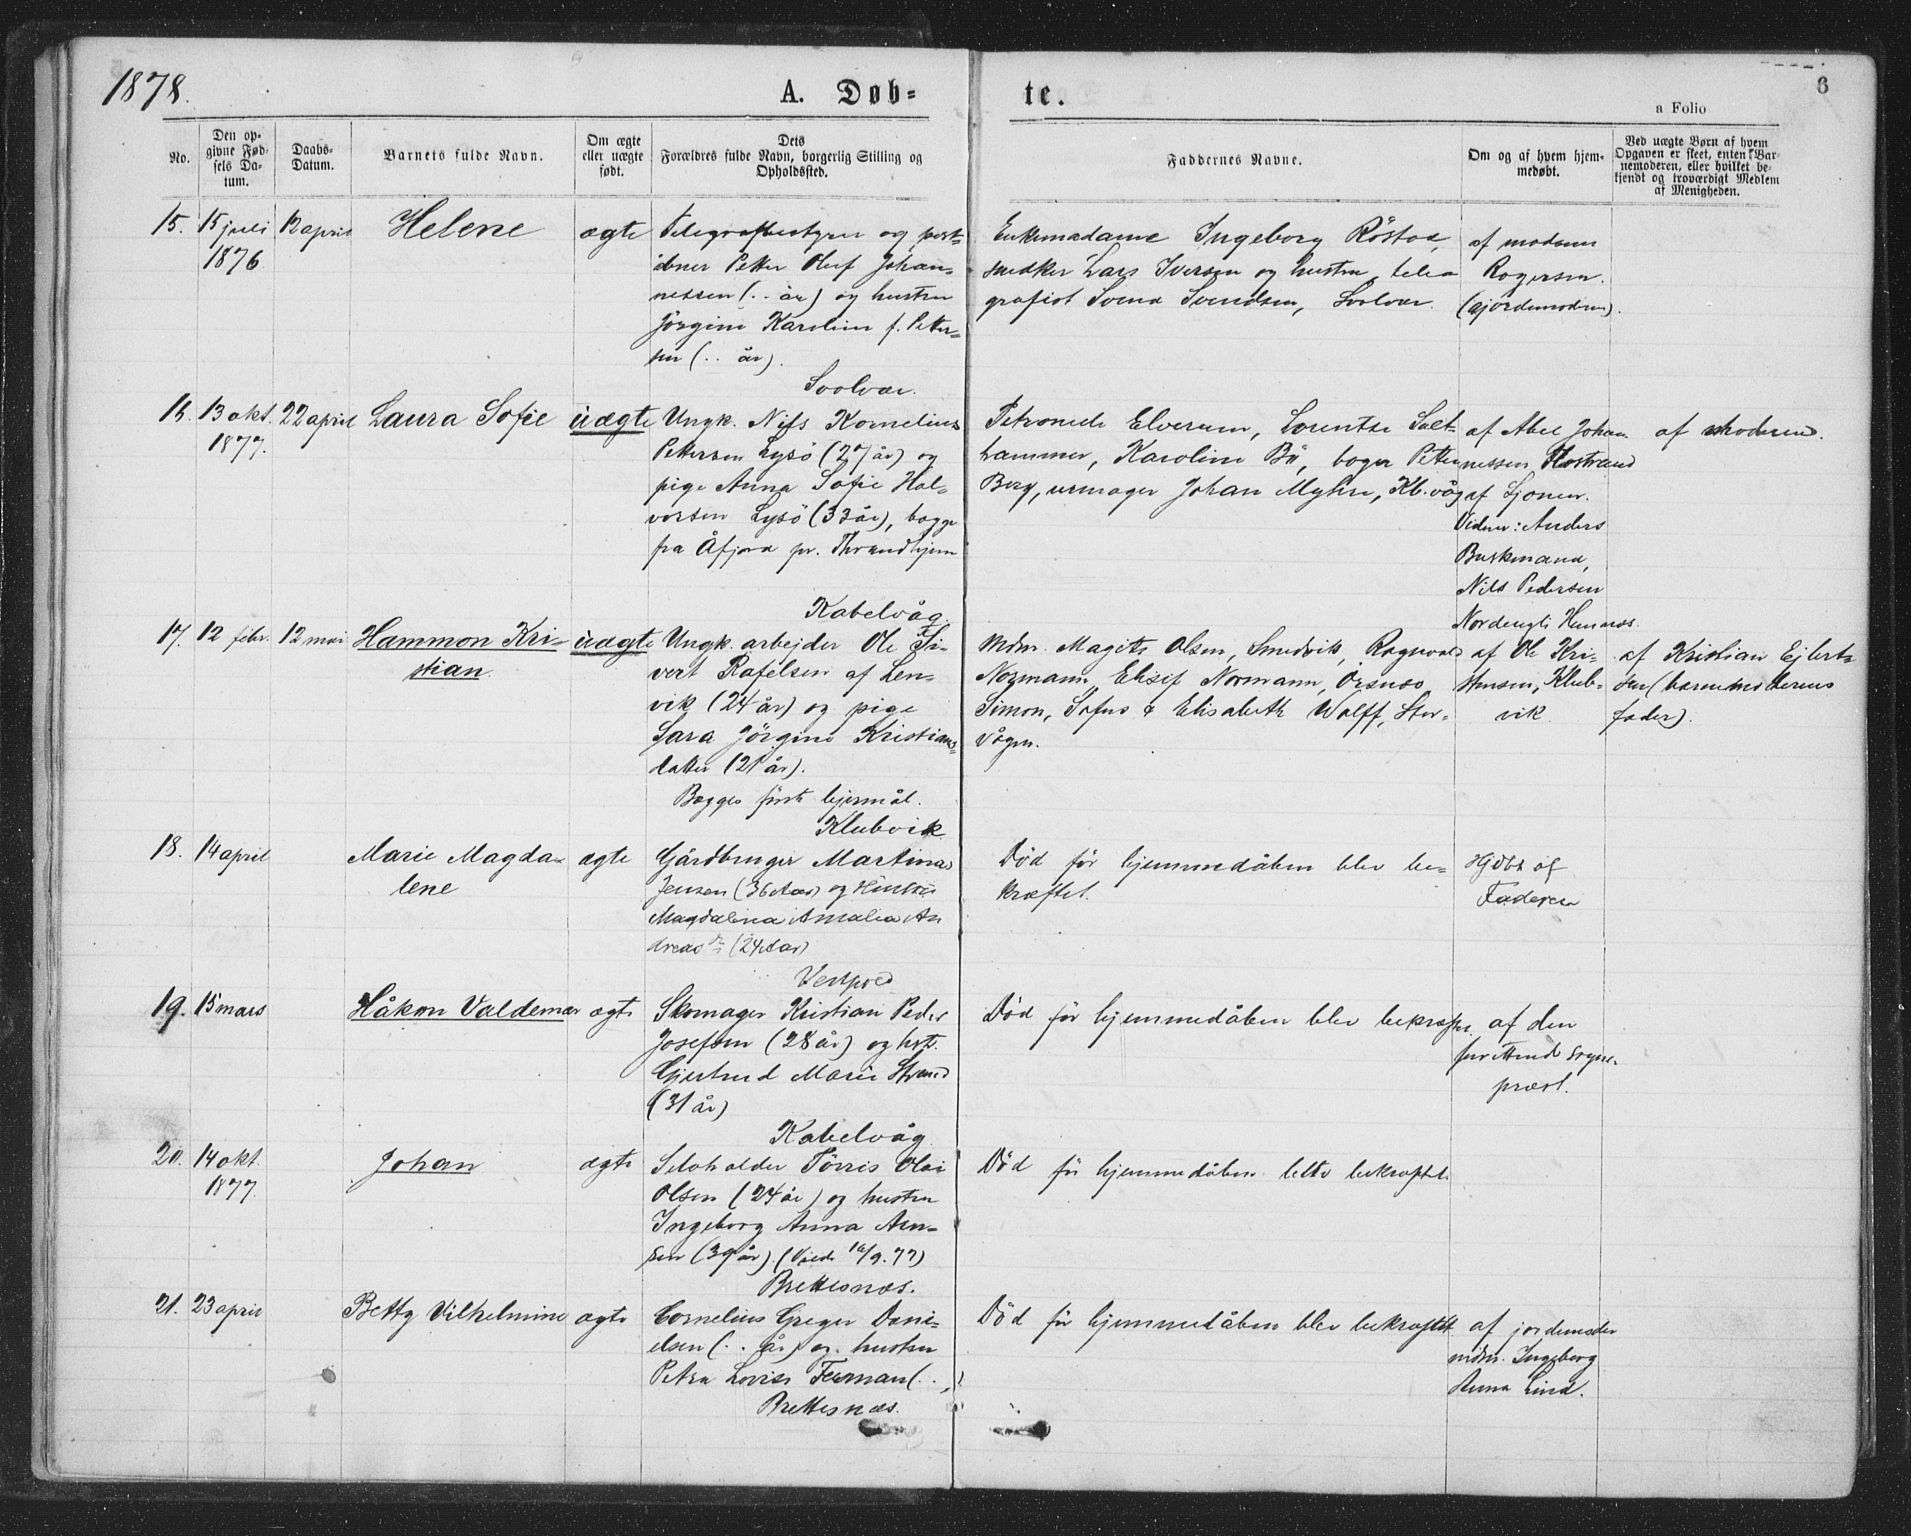 1878.
A. Døb=
te.
6
a Folio
No.
Den op-
givne Fød-
sels Da-
tum.
Daabs-
Datum.
Barnets fulde Navn.
Om ægte
eller uægte
født.
Dets
Forældres fulde Navn, borgerlig Stilling og
Opholdssted.
Faddernes Navne.
Om og af hvem hjem-
medøbt.
Ved uægte Børn af hvem
Opgaven er skeet, enten Bar-
nemoderen, eller hvilket be-
kjendt og troværdigt Medlem
af Menigheden.
15.
15 juli
1876
12 april
Helene
ægte
Telegrafbestyrer og post-
åbner Petter Oluf Johan-
nessen (.. år) og hustru
Jörgine Karoline f. Peter-
sen (.. år).
Svolvær.
Enkemadame Ingeborg Röstad,
snedker Lars Iversen og hustru, tele-
grafist Svend Svendsen, Svolvær.
af madame
Rogersen.
(gjordemodren).
16.
13 okt.
1877.
22 april
Laura Sofie
uægte
Ungk. Nils Kornelius
Petersen Lysö (27 år) og
pige Anna Sofie Hal-
vorsen Lysö (33 år), begge
fra Åfjord pr. Throndhjem
Kabelvåg
Petronede Elverum, Lorentse Salt-
hammer, Karoline Bö, bager Peter
Berg, urmager Johan Myhre, Kb.våg
af Abel Johan-
nessen Flostrand
af Sjonen.
Vidner: Anders
Buskmand,
Nils Pedersen
Hemnæs.
af moderen.
17.
12 febr.
12 mai
Hammon Kri-
stian
uægte
Ungk. arbejder Ole Si-
vert Rafelsen af Len-
vik (24 år) og pige
Sara Jörgine Kristians-
datter (21 år).
Begges förste lejermål.
Klubvik
Mdm. Magette Olsen, Smedvik, Ragnvald
Normann, Elisif Normann, Örsnes
Simon, Sofus & Elisabeth Wolff, Stor-
vågen.
af Ole Kri-
stensen, Klub-
vik
af Kristian Ejlert-
sen (barnemoderens
fader).
18.
14 april
Marie Magda-
lene
ægte
Gårdbruger Martinus
Jensen (36 Aar) og Hustru
Magdalena Amalia An
dreas (24 Aar)
Vestpold
Död för hjemmedåben blev be-
kræftet.
Hjdbt af
Faderen
19.
15 mars
Håkon Valdemar
ægte
Skomager Kristian Peder
Josefsen (28 år) og hst.
Gjertrud Marie Strand
(31 år)
Kabelvåg
Död för hjemmedåben blev bekræftet.
af den
sogne-
præst.
20.
14 okt.
1877.
Johan
ægte
Selvholder Törris Olai
Olsen (24 år) og hustru
Ingeborg Anna Arn-
sen (39 år) (Viede 16/9.77)
Brettesnæs.
Död för hjemmedåben blev bekræftet.
21.
23 april
Betty Vilhelmine
ægte
Cornelius Greger Dani-
elsen (.. år) og hustru
Petra Lovise Forman (..)
Brettesnæs.
Död för hjemmedåben blev bekræftet
af jordemoder
mdm. Ingeborg
Anna Lind.